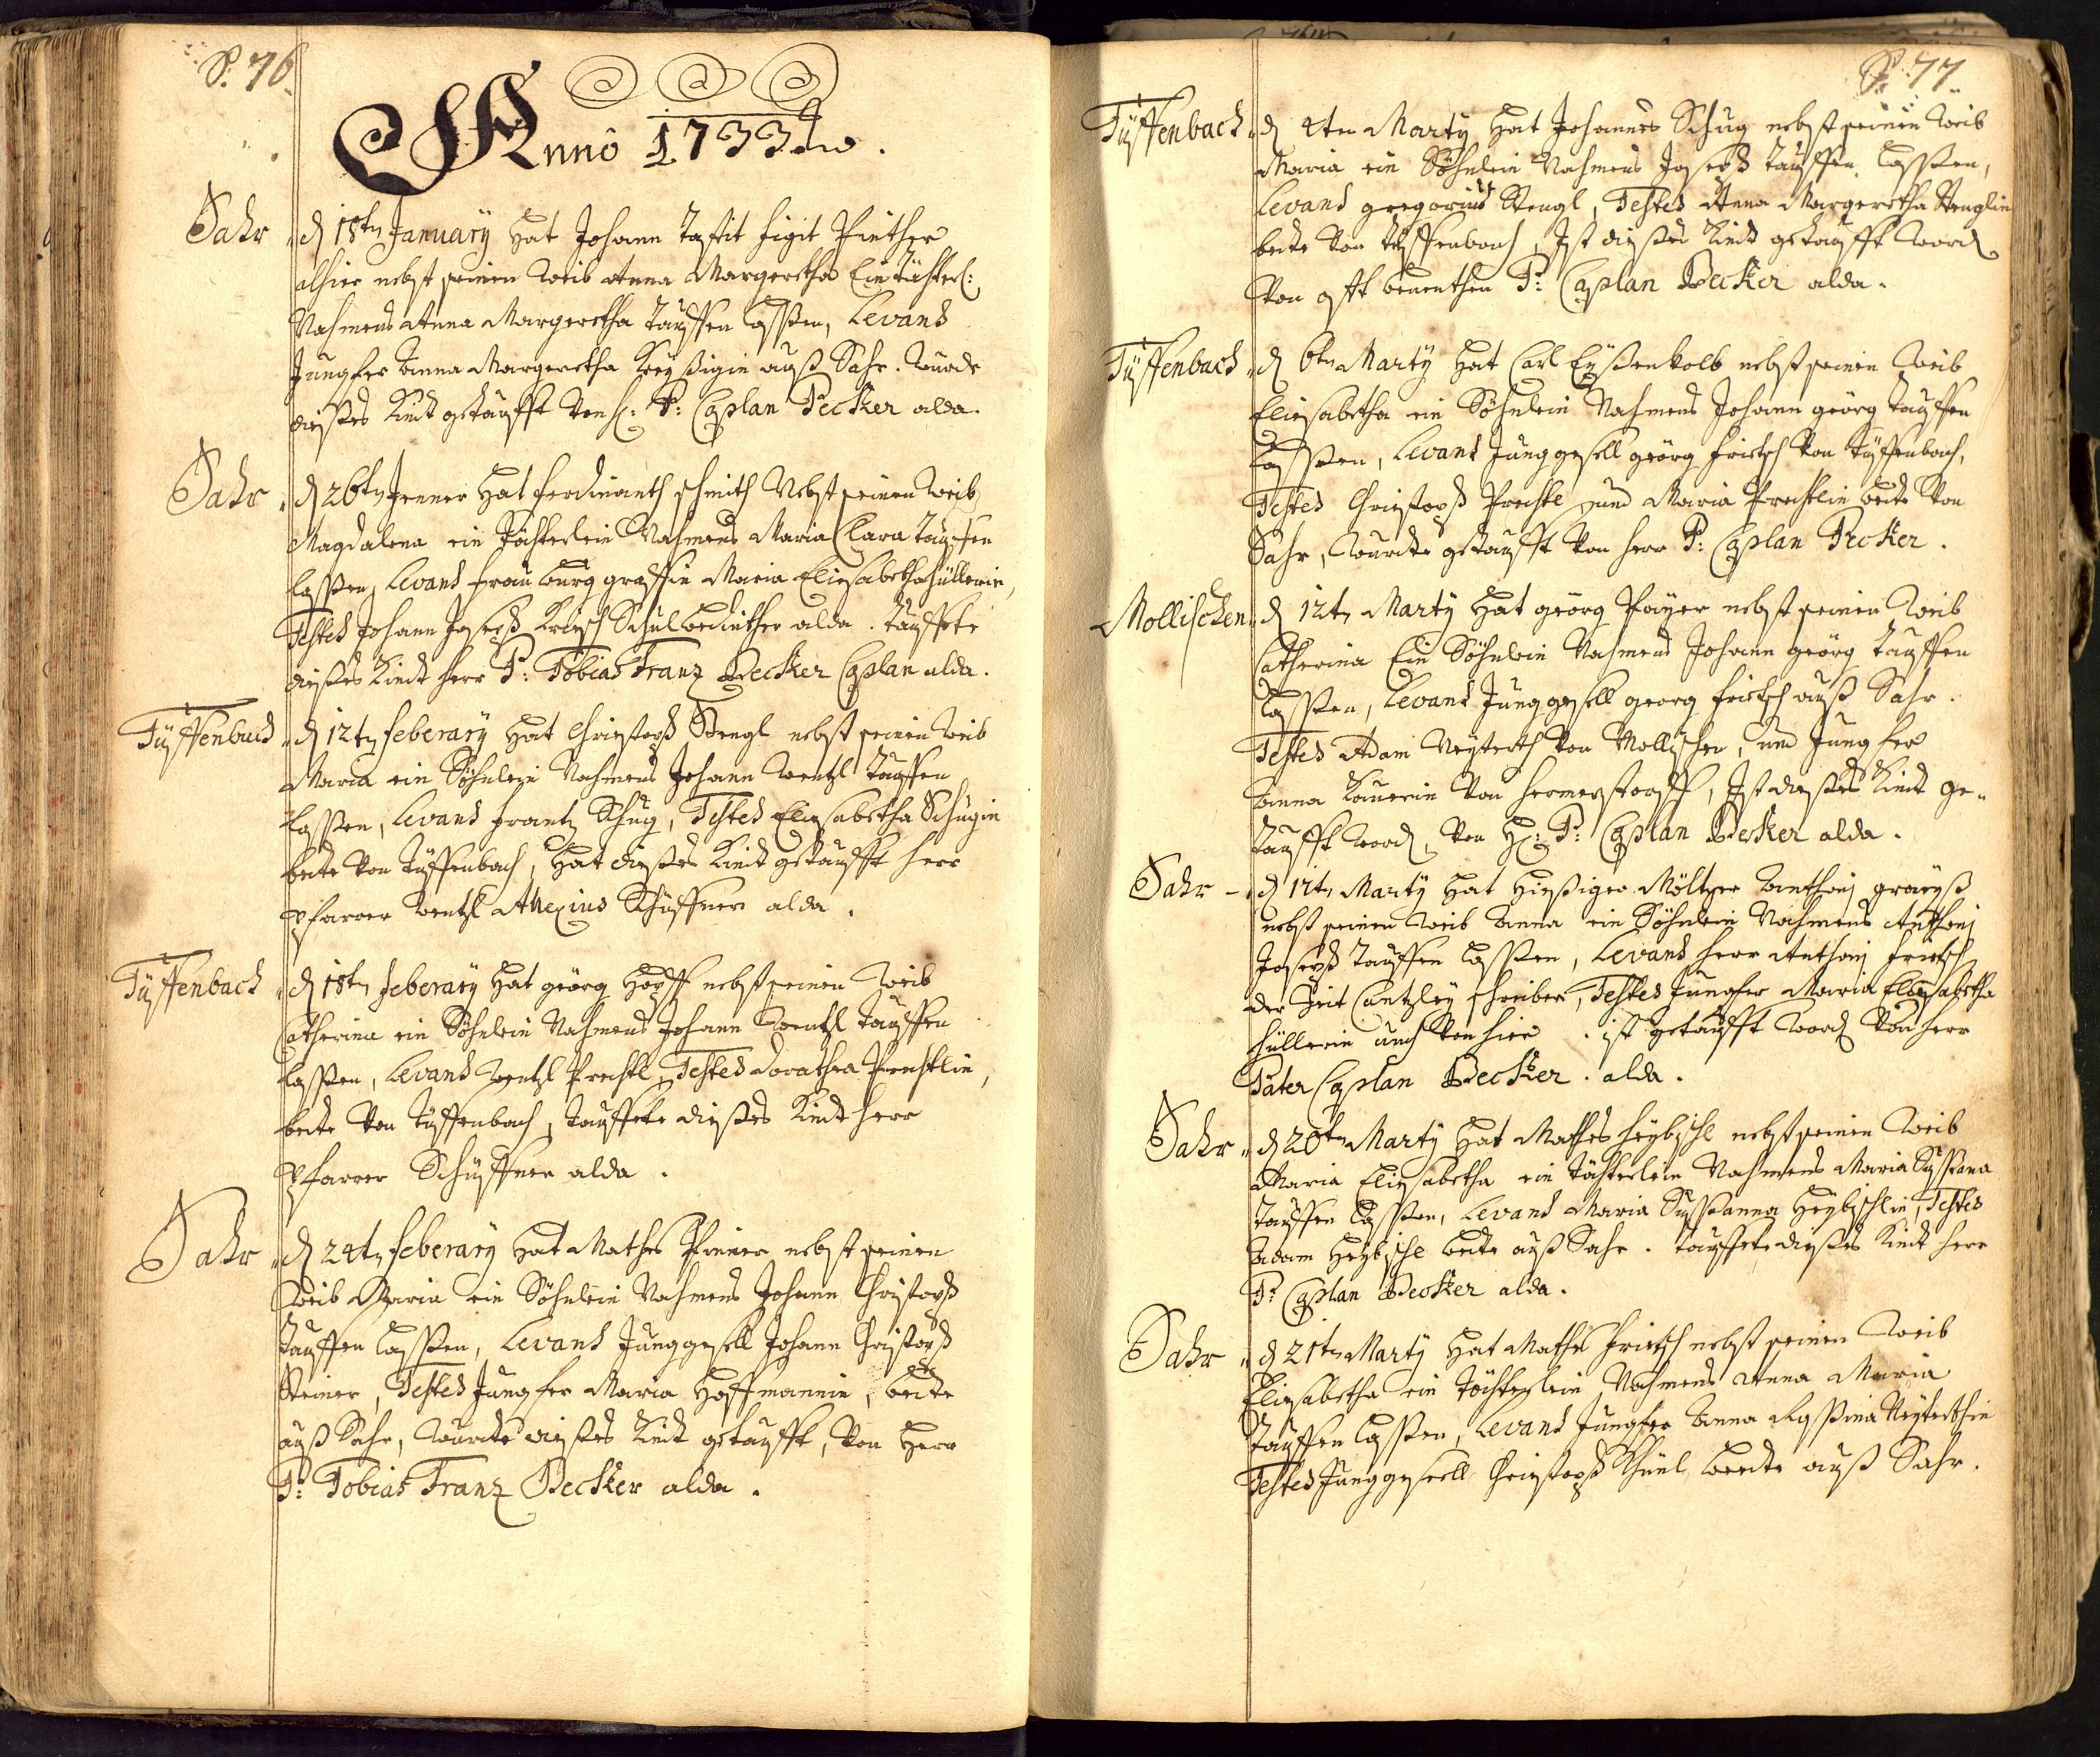 P: 76.
Anno 1733ten.
Sahr d 18tn January hat Johann Tastit figit Pinther
alhier nebst seinen Weib Anna Margeretha Ein töchterl:
Nahmens Anna Margeretha tauffen lassen, Levans
Jungfer Anna Margeretha auß Sahr. wurde
dießes Kindt getaufft von H: P: Caplan Becker alda.
Sahr d 26tn Jenner hat Ferdinanth Schmith Nebst seinen Weib
Magdalena ein Töchterlein Nahmens Maria Clara tauffen
lassen, Levans Frau burggräffin Maria Eliesabetha Hüllerin,
Testes Johann Joseph Kriesch Schulbedinther alda. tauffete
dießes Kindt Herr P: Tobias Franz Becker Caplan alda.
Tüffenbach d 12tn Feberary hat Christoph Stengl nebst seinen Weib
Maria ein Söhnlein Nahmens Johann Wentzl tauffen
lassen, Levans Frantz Schug, Testes Eliesabetha Schugin
beite von Tüffenbach, hat dießes Kindt getaufft Herr
Pfarrer Wentzl Alexius Schüffner alda.
Tüffenbach d 18tn Feberary hat Geörg Hopff nebst seinen Weib
Catherina ein Söhnlein Nahmens Johann Wentzl tauffen
lassen, Levans Wentzl Prechtl, Testes Dorathea Prechtlin,
beite von Tüffenbach, tauffete dießes Kindt Herr
Pfarrer Schüffner alda.
Sahr d 24tn Feberary hat Mathes Steiner nebst seinen
Weib Maria ein Söhnlein Nahmens Johann Christoph
tauffen lassen, Levans Junggesell Johann Christoph
Steiner, Testes Jungfer Maria Hoffmannin, beite
auß Sahr, wurdte dießes Kindt getaufft, von Herr
P: Tobias Franz Becker alda.
P: 77.
Tüffenbach d 4tn Marty hat Johannes Schug nebst seinen Weib
Maria ein Söhnlein Nahmens Joseph tauffen lassen,
Levans Gregorius Stengl, Testes Anna Margeretha Stenglin
beite von Tüffenbach, Ist dießes Kindt getaufft word
von offt benenthen P: Caplan Becker alda.
Tüffenbach d 6tn Marty hat Carl Eyßenkolb nebst seinen Weib
Eliesabetha ein Söhnlein Nahmens Johann Geörg tauffen
lassen, Levans Junggesell Geörg Frietsch von Tüffenbach,
Testes Christoph Prechtl und Maria Prechtlin beite von
Sahr, wurdte getaufft von Herr P: Caplan Becker.
Mollischen d 12tn Marty hat Geörg Payer nebst seinen Weib
Catherina Ein Söhnlein Nahmens Johann Geörg tauffen
lassen, Levans Junggesell Georg Frietsch auß Sahr.
Testes Adam Neyterth von Mollischen, und Jungfer
Anna Bauerin von Hermerstorff, Ist dießes Kindt ge-
taufft word, von H: P: Caplan Becker alda.
Sahr - d 12tn Marty hat hießiger Möltzer Anthonj
nebst seinen Weib Anna ein Söhnlein Nahmens Anthonj
Joseph tauffen lassen, Levans Herr Anthonj Frietsch
der Zeit Cantzley schreiber, Testes Jungfer Maria Eliesabetha
Hüllerin auch von hier. ist getaufft word von Herr
Pater Caplan Becker. alda.
Sahr d 20tn Marty hat Mathes Heybischl nebst seinen Weib
Maria Eliesabetha ein töchterlein Nahmens Maria Sussana
tauffen lassen, Levans Maria Sussanna Heybischlin, Testes
Adam Heybischl beite auß Sahr. tauffete dießes Kindt Herr
P: Caplan Becker alda.
Sahr d 21tn Marty hat Mathes Frietsch nebst seinen Weib
Eliesabetha ein Töchterlein Nahmens Anna Maria
tauffen lassen, Levans Jungfer Anna Rosina Neyterthin
Testes Junggesell Christoph beite auß Sahr.